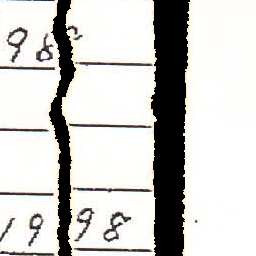 98
1998